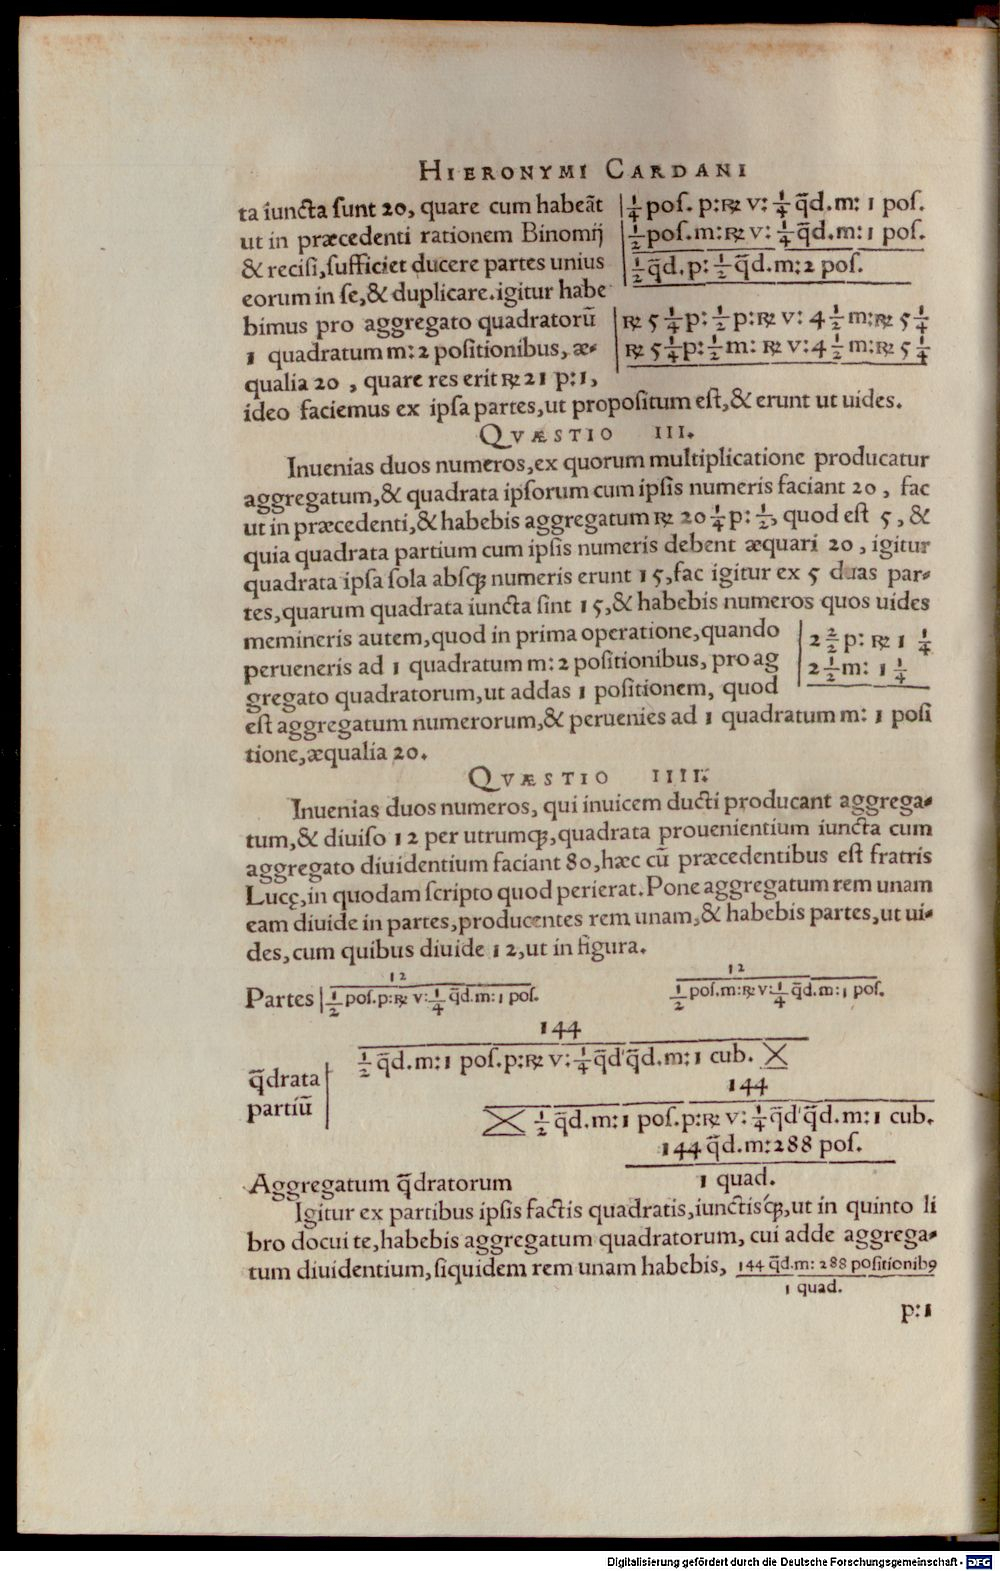 HIERONYMI CARDANI
ta iuncta sunt 20, quare cum habeãt
ut in præcedenti rationem Binomij
& recisi, sufficiet ducere partes unius
eorum in se, & duplicare. igitur habe
bimus pro aggregato quadratorũ
1 quadratum m: 2 positionibus, æ-
qualia 20, quare res erit ℞ 21 p: 1,
1/4 pos. p: ℞ v: 1/4 q̃d. m: 1 pos.
1/2 pos. m: ℞ v: 1/4 q̃d. m: 1 pos.
1/2 q̃d. p: 1/2 q̃d. m: 2 pos.
℞ 5 1/4 p: 1/2 p: ℞ v: 4 1/2 m: ℞ 5 1/4
℞ 5 1/4 p: 1/2 m: ℞ v: 4 1/2 m: ℞ 5 1/4
ideo faciemus ex ipsa partes, ut propositum est, & erunt ut uides.
QVÆSTIO III.
Inuenias duos numeros, ex quorum multiplicatione producatur
aggregatum, & quadrata ipsorum cum ipsis numeris faciant 20, fac
ut in præcedenti, & habebis aggregatum ℞ 20 1/4 p: 1/2, quod est 5, &
quia quadrata partium cum ipsis numeris debent æquari 20, igitur
quadrata ipsa sola absq; numeris erunt 15, fac igitur ex 5 duas par-
tes, quarum quadrata iuncta sint 15, & habebis numeros quos uides
memineris autem, quod in prima operatione, quando
perueneris ad 1 quadratum m: 2 positionibus, pro ag
gregato quadratorum, ut addas 1 positionem, quod
2 2/2 p: ℞ 1 1/4
2 1/2 m: 1 1/4
est aggregatum numerorum, & peruenies ad 1 quadratum m: 1 posi
tione, æqualia 20.
QVÆSTIO IIII.
Inuenias duos numeros, qui inuicem ducti producant aggrega-
tum, & diuiso 12 per utrumq;, quadrata prouenientium iuncta cum
aggregato diuidentium faciant 80, hæc cũ præcedentibus est fratris
Lucę, in quodam scripto quod perierat. Pone aggregatum rem unam
eam diuide in partes, producentes rem unam, & habebis partes, ut ui-
des, cum quibus diuide 12, ut in figura.
12 12
Partes 1/2 pos. p: ℞ v: 1/4 q̃d. m: 1 pos. 1/2 pos. m: ℞ v: 1/4 q̃d. m: 1 pos.
144
1/2 q̃d. m: 1 pos. p: ℞ v: 1/4 q̃d' q̃d. m: 1 cub.
q̃drata
partiũ
144
1/2 q̃d. m: 1 pos. p: ℞ v: 1/4 q̃d' q̃d. m: 1 cub.
144 q̃d. m: 288 pos.
Aggregatum q̃dratorum 1 quad.
Igitur ex partibus ipsis factis quadratis, iunctisq́;, ut in quinto li
bro docui te, habebis aggregatum quadratorum, cui adde aggrega-
tum diuidentium, siquidem rem unam habebis, 144 q̃d. m: 288 positionib9
1 quad.
p: 1
Digitalisierung gefördert durch die Deutsche Forschungsgemeinschaft - DFG